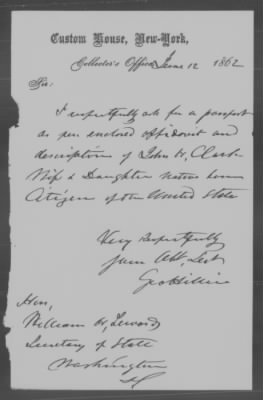 Custom House, New-York,
Collector's Office, June 12 1862
Sir:
I respectfully ask for a passport
as per enclosed affidavit and
description of John H. Clark
Wife & Daughter native born
Citizen of the United State
Very Respectfully
your Obt, Svt
Hon,
William H, Seward
Secretary of State
Washington